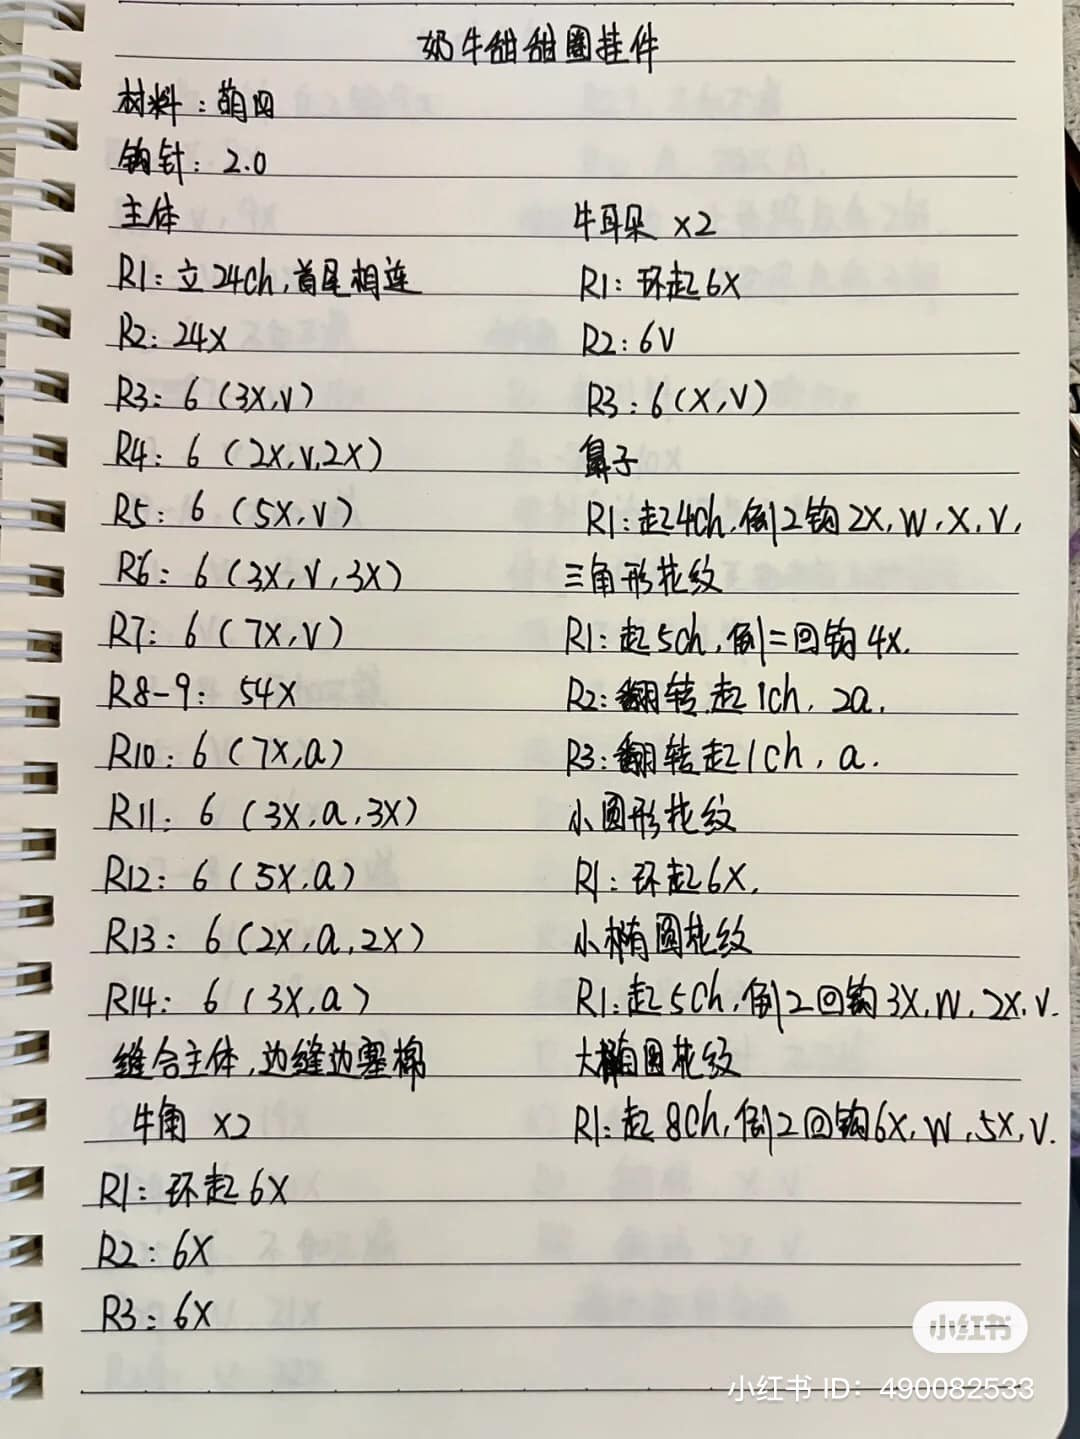 奶牛甜甜圈挂件
材料：萌困
钩针：2.0
主体
R1：立24ch，首尾相连
R2：24X
R3：6（3X,V）
R4：6（2X,V,2X）
R5：6（5X,V）
R6：6（3X,V,3X）
R7：6（7X,V）
R8-9：54X
R10：6（7X,a）
R11：6（3X,a,3X）
R12：6（5X,a）
R13：6（2X,a,2X）
R14：6（3X,a）
缝合主体，边缝边塞棉
牛角 X2
R1：环起6X
R2：6X
R3：6X
牛耳朵 X2
R1：环起6X
R2：6V
R3：6（X,V）
鼻子
R1：起4ch，倒2钩2X,W,X,V，
三角形花纹
R1：起5ch，倒二回钩4X.
R2：翻转起1ch，2a.
R3：翻转起1ch，a.
小圆形花纹
R1：环起6X.
小椭圆花纹
R1：起5ch，倒2回钩3X,W,2X,V.
大椭圆花纹
R1：起8ch，倒2回钩6X,W,5X,V.
小红书
小红书 ID：490082533